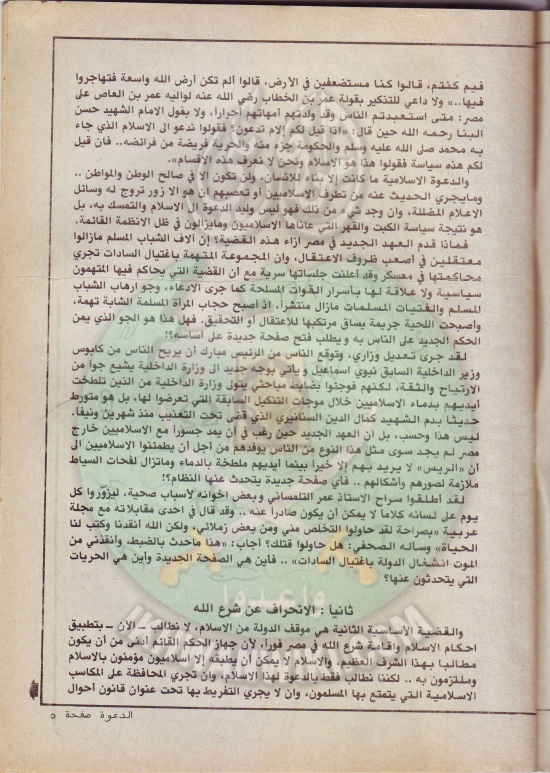 فيم كنتم، قالوا كنا مستضعفين في الأرض، قالوا ألم تكن أرض الله واسعة فتهاجروا
فيها..» ولا داعي للتذكير بقولة عمر بن الخطاب رضي الله عنه لواليه عمر بن العاص على
مصر: متى استعبدتم الناس وقد ولدتهم أمهاتهم أحراراً، ولا بقول الامام الشهيد حسن
البنا رحمه الله حين قال: «اذا قيل لكم إلام تدعون؟ فقولوا ندعو الى الاسلام الذي جاء
به محمد صلى الله عليه وسلم والحكومة جزء منه والحرية فريضة من فرائضه.. فان قيل
لكم هذه سياسة فقولوا هذا هو الاسلام ونحن لا نعرف هذه الاقسام».
والدعوة الاسلامية ما كانت إلا بناء للانسان، ولن تكون الا في صالح الوطن والمواطن ..
ومايجري الحديث عنه من تطرف الاسلاميين أو تعصبهم ان هو الا زور تروج له وسائل
الاعلام المضللة، وان وجد شيء من ذلك فهو ليس وليد الدعوة الى الاسلام والتمسك به، بل
هو نتيجة سياسة الكبت والقهر التي عاناها الاسلاميون ومايزالون في ظل الانظمة القائمة.
فماذا قدم العهد الجديد في مصر ازاء هذه القضية؟ إن آلاف الشباب المسلم مازالوا
معتقلين في أصعب ظروف الاعتقال، وان المجموعة المتهمة باغتيال السادات تجري
محاكمتها في معسكر وقد أعلنت جلساتها سرية مع أن القضية التي يحاكم فيها المتهمون
سياسية ولا علاقة لها بأسرار القوات المسلحة كما جرى الادعاء، وجو ارهاب الشباب
المسلم والفتيات المسلمات مازال منتشراً، اذ اصبح حجاب المرأة المسلمة الشابة تهمة،
وأصبحت اللحية جريمة يساق مرتكبها للأعتقال أو التحقيق. فهل هذا هو الجو الذي يمن
الحكم الجديد على الناس به ويطلب فتح صفحة جديدة على أساسه؟!
لقد جرى تعديل وزاري، وتوقع الناس من الرئيس مبارك أن يريح الناس من كابوس
وزير الداخلية السابق نبوي اسماعيل ويأتي بوجه جديد الى وزارة الداخلية يشيع جواً من
الارتياح والثقة، لكنهم فوجئوا بضابط مباحثي يتول وزارة الداخلية من الذين تلطخت
أيديهم بدماء الاسلاميين خلال موجات التنكيل السابقة التي تعرضوا لها، بل هو متورط
حديثا بدم الشهيد كمال الدين السنانيري الذي قضى تحت التعذيب منذ شهرين ونيفاً.
ليس هذا وحسب، بل ان العهد الجديد حين رغب في أن يمد جسوراً مع الاسلاميين خارج
مصر لم يجد سوى مثل هذا النوع من الناس يوفدهم من أجل أن يطمئنوا الاسلاميين الى
أن «الريس» لا يريد بهم إلا خيراً بينما أيديهم ملطخة بالدماء وماتزال لفحات السياط
ملازمة لصورهم وأشكالهم .. فأي صفحة جديدة يتحدث عنها النظام؟!
لقد أطلقوا سراح الاستاذ عمر التلمساني وبعض اخوانه لأسباب صحية، ليزوّروا كل
يوم على لسانه كلاما لا يمكن أن يكون صادراً عنه .. وقد قال في احدى مقابلاته مع مجلة
عربية «بصراحة لقد حاولوا التخلص مني ومن بعض زملائي، ولكن الله أنقدنا وكتب لنا
الحياة» وسأله الصحفي: هل حاولوا قتلك؟ أجاب: «هذا ماحدث بالضبط، وأنقذني من
الموت انشغال الدولة بأغتيال السادات» .. فأين هي الصفحة الجديدة وأين هي الحريات
التي يتحدثون عنها؟
ثانيا : الانحراف عن شرع الله
والقضية الأساسية الثانية هي موقف الدولة من الاسلام، لا نطالب ــ الآن ــ بتطبيق
احكام الاسلام واقامة شرع الله في مصر فوراً، لأن جهاز الحكم القائم أدنى من أن يكون
مطالبا بهذا الشرف العظيم، والاسلام لا يمكن أن يطبقه إلا اسلاميون مؤمنون بالاسلام
وملتزمون به .. لكننا نطالب فقط بالدعوة لهذا الاسلام، وان تجري المحافظة على المكاسب
الاسلامية التي يتمتع بها المسلمون، وان لا يجري التفريط بها تحت عنوان قانون أحوال
الدعوة صفحة ٥
وأعدوا